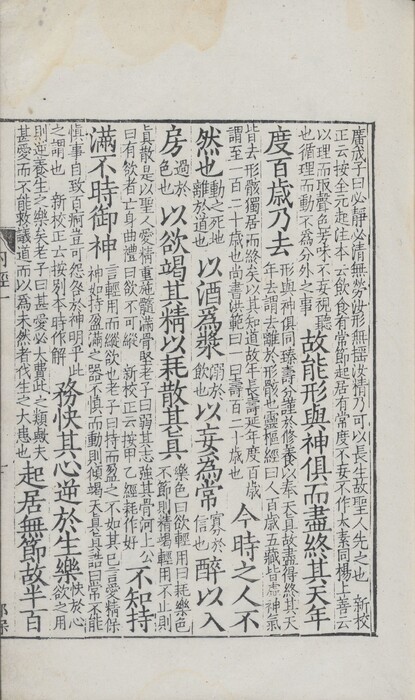 廣成子曰必靜必清無勞汝形無揺汝精乃可以長生故聖人先之也 新校
正云按全元起注本云飲食有常節起居有常度不妄不作太素同楊上善云
以理而取聲色芳味不妄視聽
也循理而動不為分外之事
故能形與神俱而盡終其天年
度百歲乃去
形與神俱同臻壽分謹於修養以奉天真故盡得終其天
年去謂去離於形骸也靈樞經曰人百歲五藏皆虛神氣
皆去形骸獨居而終矣以其知道故年長壽延年度百歲
謂至一百二十歲也尚書洪範曰一曰壽百二十歲也
今時之人不
然也
動之死地
離於道也
以酒為漿
溺於
飲也
以妄為常
寡於
信也
醉以入
房
過於
色也
以欲竭其精以耗散其真
樂色曰欲輕用曰耗樂色
不節則精竭輕用不止則
真散是以聖人愛精重施髓滿骨堅老子曰弱其志強其骨河上公
曰有欲者亡身曲禮曰欲不可縱 新校正云按甲乙經耗作好
不知持
滿不時御神
言輕用而縱欲也老子曰持而盈之不如其已言愛精保
神如持盈滿之器不慎而動則傾竭天真真誥曰常不能
慎事自致百痾豈可怨咎於神明乎此
之謂也 新校正云按別本時作解
務快其心逆於生樂
快於心
欲之用
則逆養生之樂矣老子曰甚愛必大費此之類歟夫
甚愛而不能救議道而以為未然者伐生之大患也
起居無節故半百
內經一